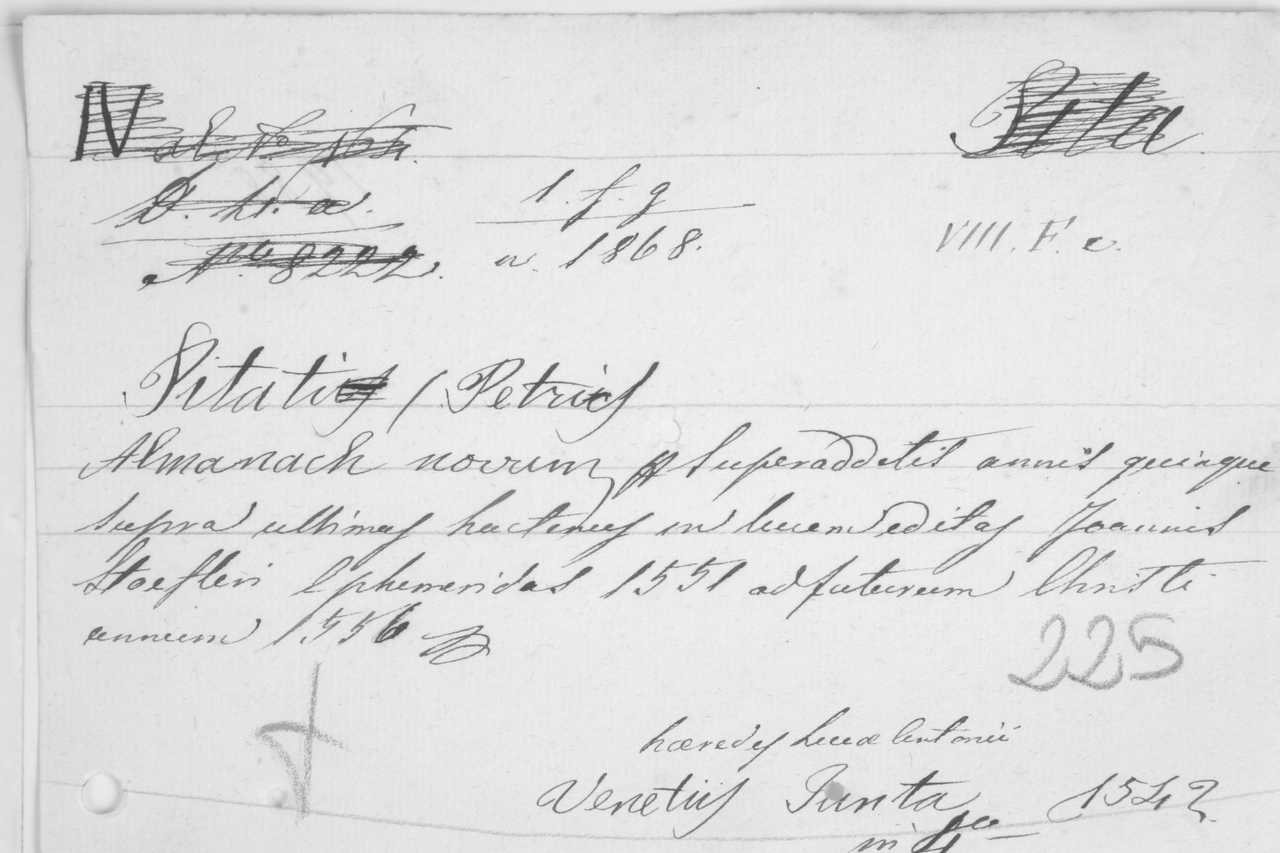 Pita
D. h. a.
1. f. g
VIII. F. c.
N° 8222.
a. 1868.
Pitati / Petrus
Almanach novum Superadditis annis quinque
supra ultimas hactenus in lucem editas Joannis
Stoefleri Ephemeridas 1551 ad futurum Christi
annum 1556
225
hæredes Lucæ Antonii
Venetiis Junta 1542
in 4to